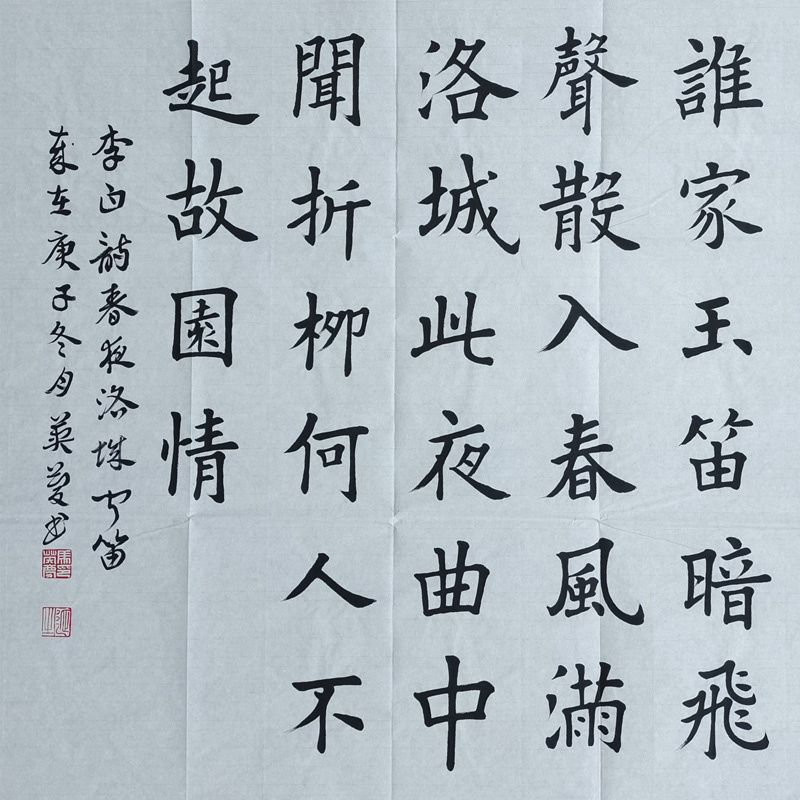 誰家玉笛暗飛
聲散入春風滿
洛城此夜曲中
聞折柳何人不
起故園情
李白詩春夜洛城聞笛
歲在庚子冬月英書